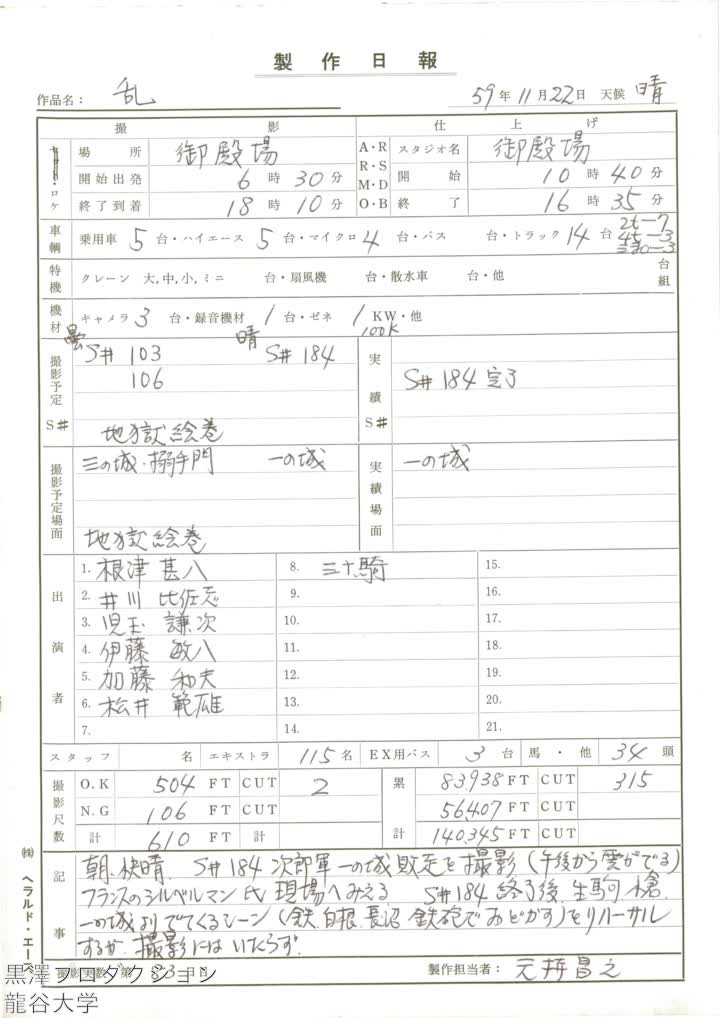 製作日報
作品名： 乱 59年11月22日 天候 晴
撮影 仕上げ
ロケ 場所 御殿場 A・R R・S M・D O・B スタジオ名 御殿場
開始出発 6時30分 開始 10時40分
終了到着 18時10分 終了 16時35分
車輌 乗用車 5台・ハイエース 5台・マイクロ 4台・バス 台・トラック 14台 2t-7 4t-3
特機 クレーン 大,中,小,ミニ 台・扇風機 台・散水車 台・他 台組
機材 キャメラ 3台・録音機材 1台・ゼネ 1KW・他
100K
撮影予定S# 曇 S# 103 晴 S# 184 実績S#
106 S# 184 完了
地獄絵巻
撮影予定場面 三の城・搦手門 一の城 実績場面 一の城
地獄絵巻
出演者 1. 根津 甚八 8. 三十騎 15.
2. 井川 比佐志 9. 16.
3. 児玉 謙次 10. 17.
4. 伊藤 敏八 11. 18.
5. 加藤 和夫 12. 19.
6. 松井 範雄 13. 20.
7. 14. 21.
スタッフ 名 エキストラ 115名 EX用バス 3台 馬・他 34頭
撮影尺数 O.K 504 FT CUT 2 累計 83,938 FT CUT 315
N.G 106 FT CUT 56,407 FT CUT
計 610 FT 計 140,345 FT CUT
記事 朝、快晴. S#184 次郎軍一の城敗走を撮影(午後から雲がでる)
フランスのシルベルマン氏 現場へみえる S#184 終了後、生駒 槍、
一の城よりでてくるシーン(鉄、白根、長沼 鉄砲でおどかす)をリハーサル
するが、撮影にはいたらず.
撮影実数 第 83日 製作担当者： 元持昌之
㈱ ヘラルド・エース
黒澤プロダクション
龍谷大学